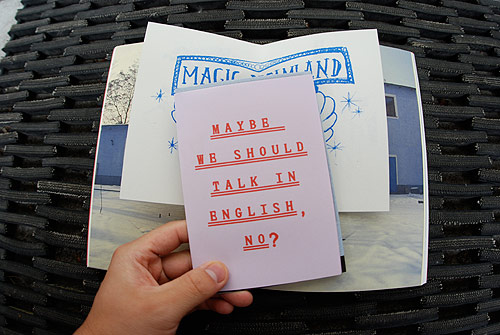 MAGIC
MAYBE
WE SHOULD
TALK IN
ENGLISH,
NO?